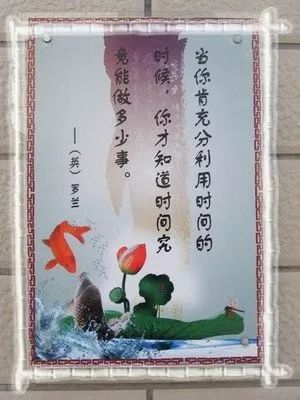 当你肯充分利用时间的
时候，你才知道时间究
竟能做多少事。
——（英）罗兰